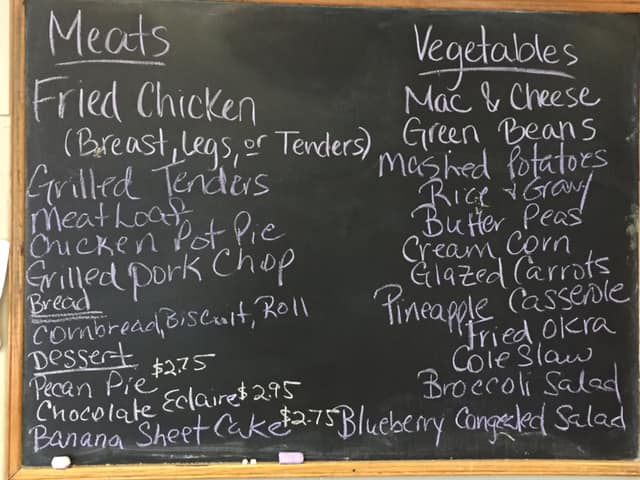 Meats
Fried Chicken
(Breast, Legs, or Tenders)
Grilled Tenders
Meat Loaf
Chicken Pot Pie
Grilled Pork Chop
Bread
Cornbread, Biscuit, Roll
Dessert
Pecan Pie $2.75
Chocolate Eclaire $2.95
Banana Sheet Cake $2.75
Vegetables
Mac & Cheese
Green Beans
Mashed Potatoes
Rice & Gravy
Butter Peas
Cream Corn
Glazed Carrots
Pineapple Casserole
Fried Okra
Cole Slaw
Broccoli Salad
Blueberry Congealed Salad